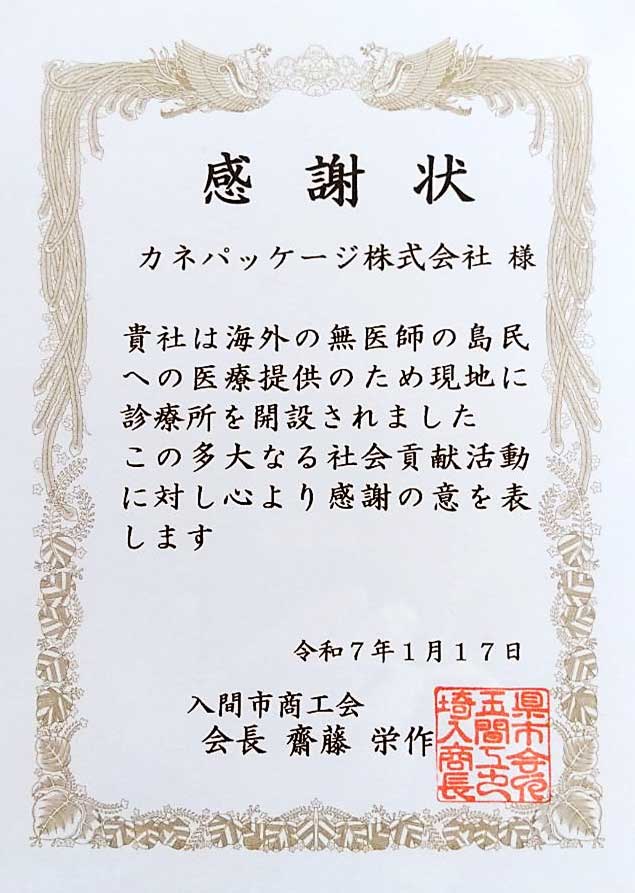 感謝状
カネパッケージ株式会社 様
貴社は海外の無医師の島民
への医療提供のため現地に
診療所を開設されました
この多大なる社会貢献活動
に対し心より感謝の意を表
します
令和７年１月１７日
入間市商工会
会長 齋藤 栄作